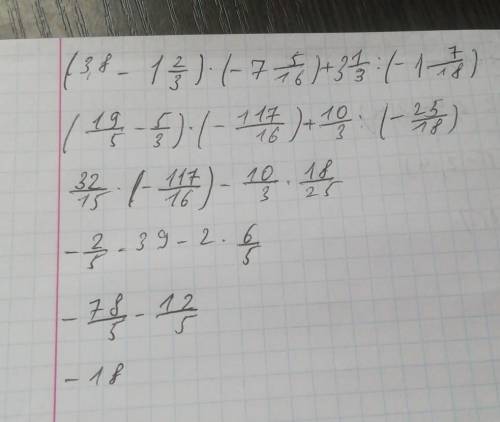 (3,8 - 1 2/3) · (-7 5/16) + 3 1/3 : (-1 7/18)
(19/5 - 5/3) · (-117/16) + 10/3 : (-25/18)
32/15 · (-117/16) - 10/3 · 18/25
-2/5 · 39 - 2 · 6/5
-78/5 - 12/5
-18